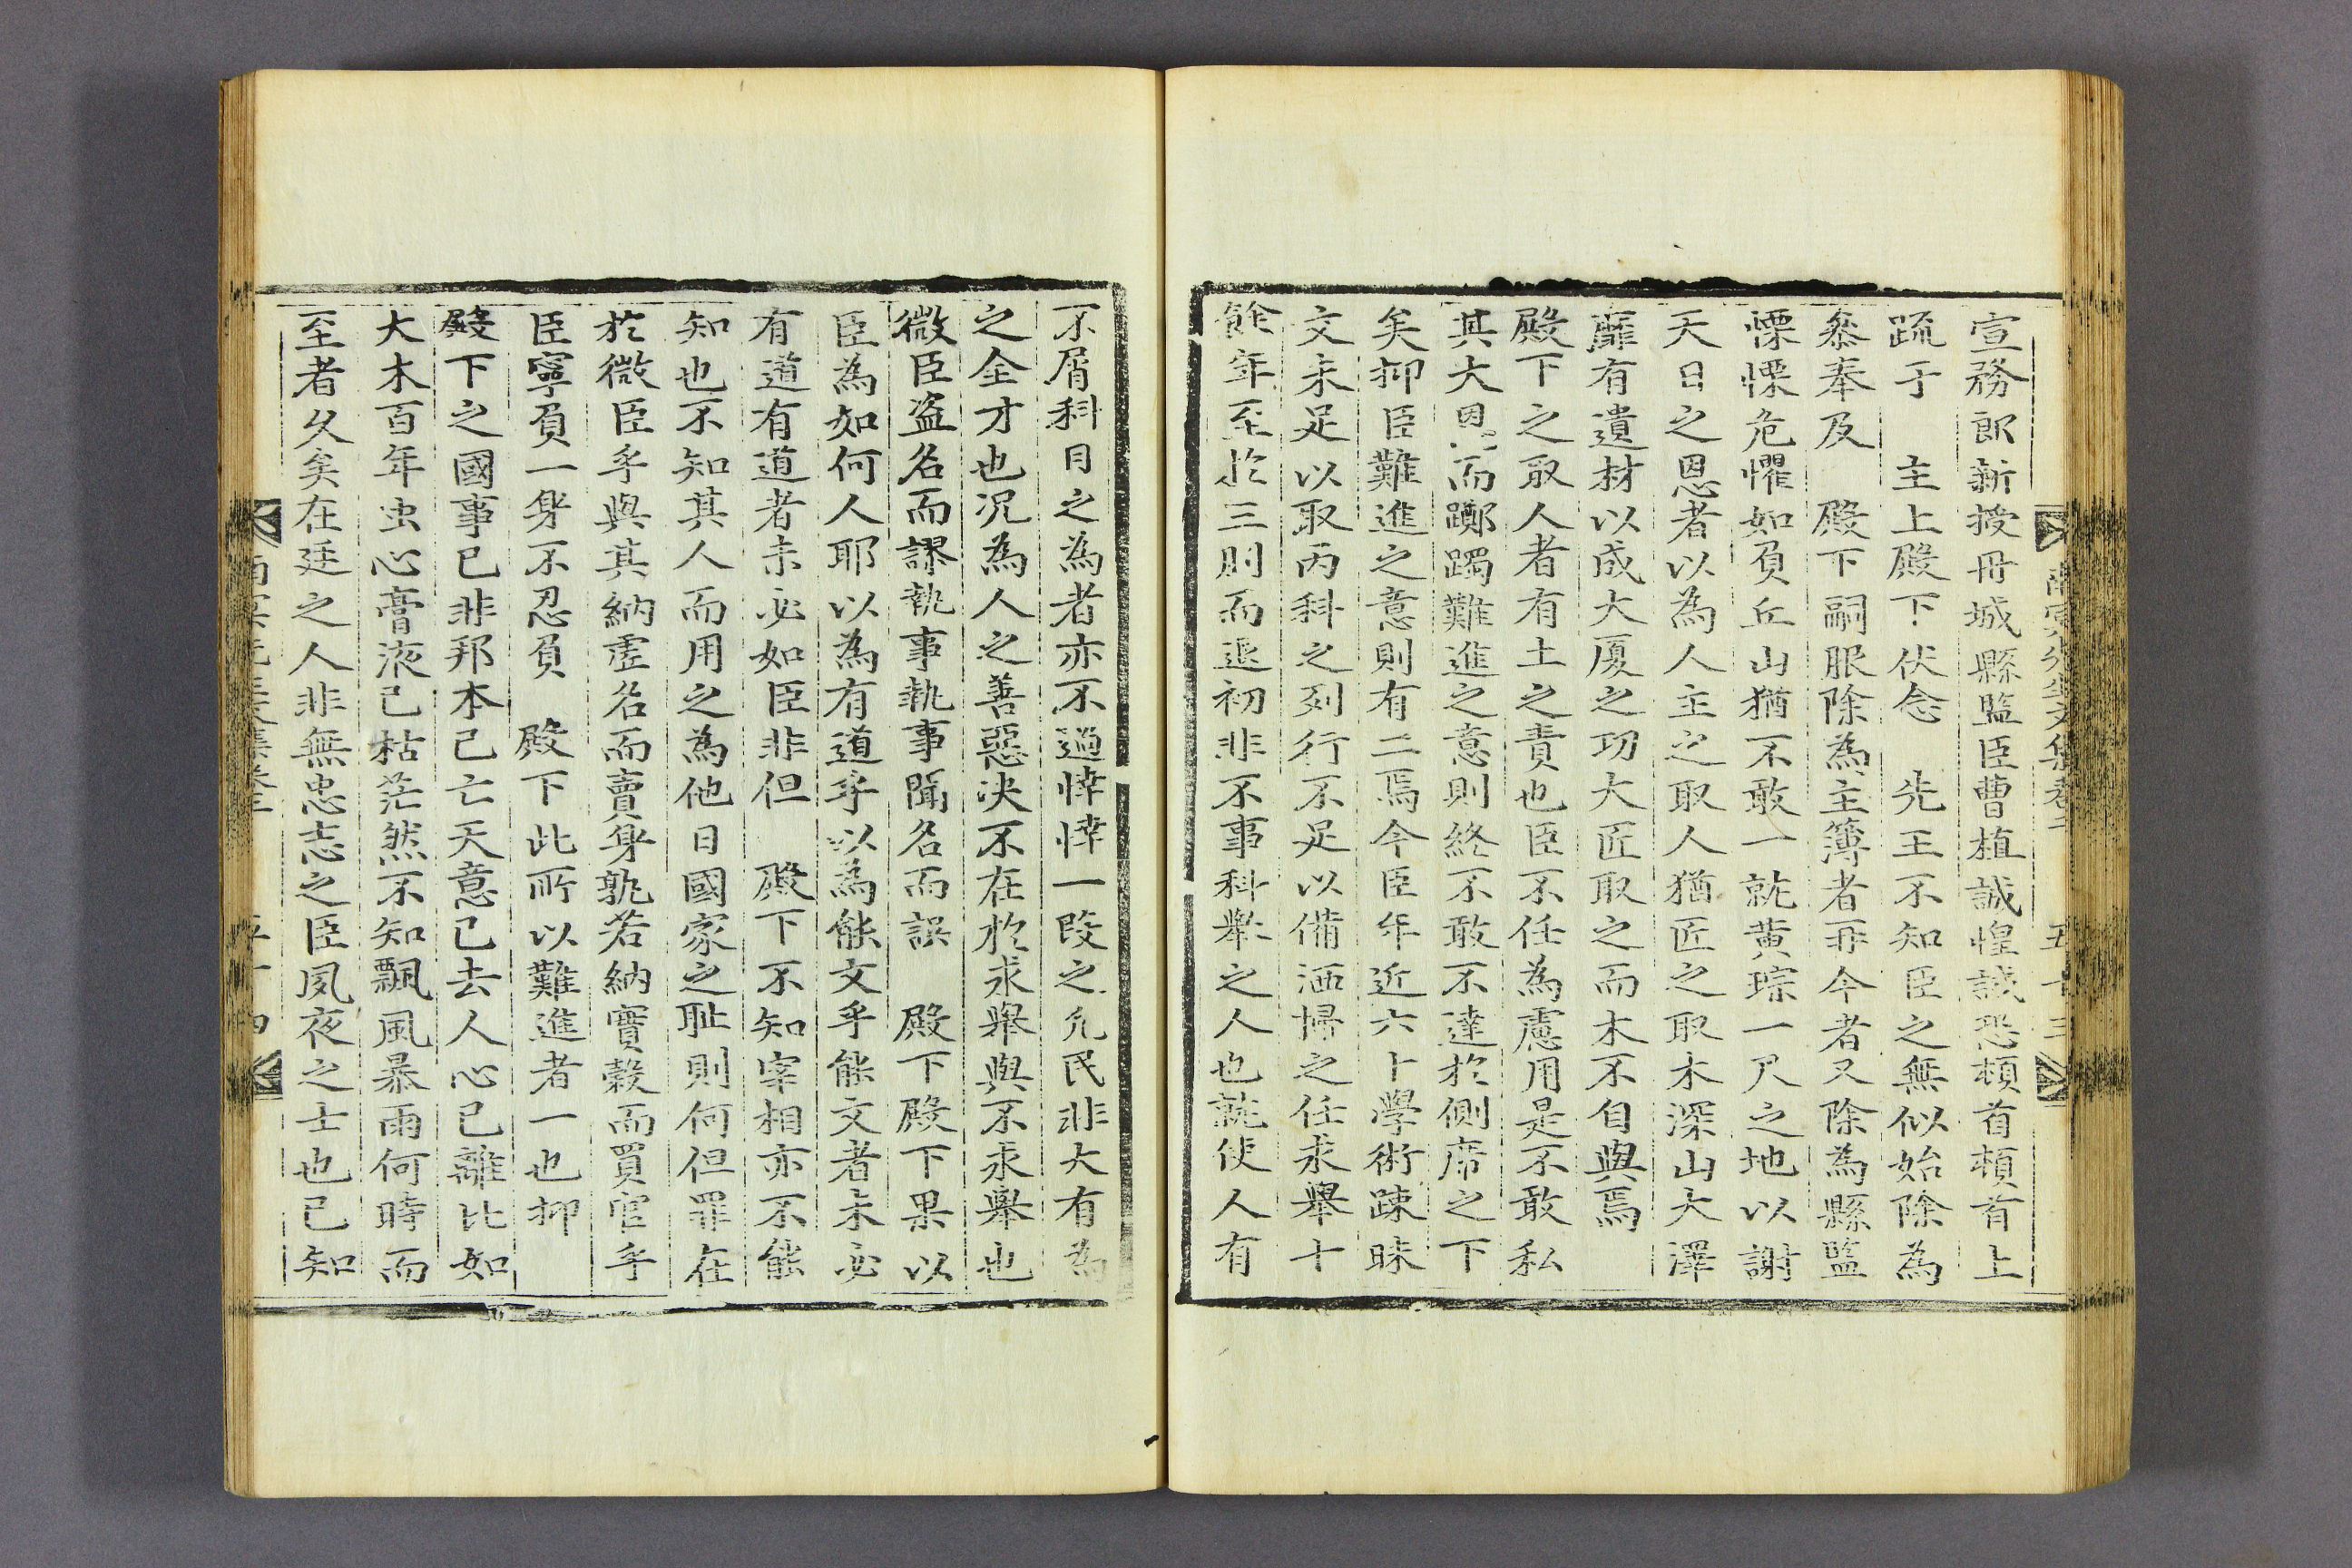 宣務郎新授丹城縣監臣曺植誠惶誠恐頓首頓首上
疏于 主上殿下伏念 先王不知臣之無似始除為
叅奉及 殿下嗣服除為主簿者再今者又除為縣監
慄慄危懼如負丘山猶不敢一就黄琮一尺之地以謝
天日之恩者以為人主之取人猶匠之取木深山大澤
靡有遺材以成大厦之功大匠取之而木不自與焉
殿下之取人者有土之責也臣不任為慮用是不敢私
其大恩而躑躅難進之意則終不敢不達於側席之下
矣抑臣難進之意則有二焉今臣年近六十學術踈昧
文未足以取丙科之列行不足以備洒掃之任求舉十
餘年至於三刖而退初非不事科舉之人也就使人有
不屑科目之為者亦不過悻悻一段之允民非大有為
之全才也况為人之善惡决不在於求舉與不求舉也
微臣盗名而謬執事執事聞名而誤 殿下殿下果以
臣為如何人耶以為有道乎以為能文乎能文者未必
有道有道者未必如臣非但 殿下不知宰相亦不能
知也不知其人而用之為他日國家之耻則何但罪在
於微臣乎與其納虗名而賣身孰若納實穀而買官乎
臣寧負一身不忍負 殿下此所以難進者一也抑
殿下之國事已非邦本已亡天意已去人心已離比如
大木百年虫心膏液已枯茫然不知飄風暴雨何時而
至者久矣在廷之人非無忠志之臣夙夜之士也已知
南冥先生文集卷二 五十三
五十四